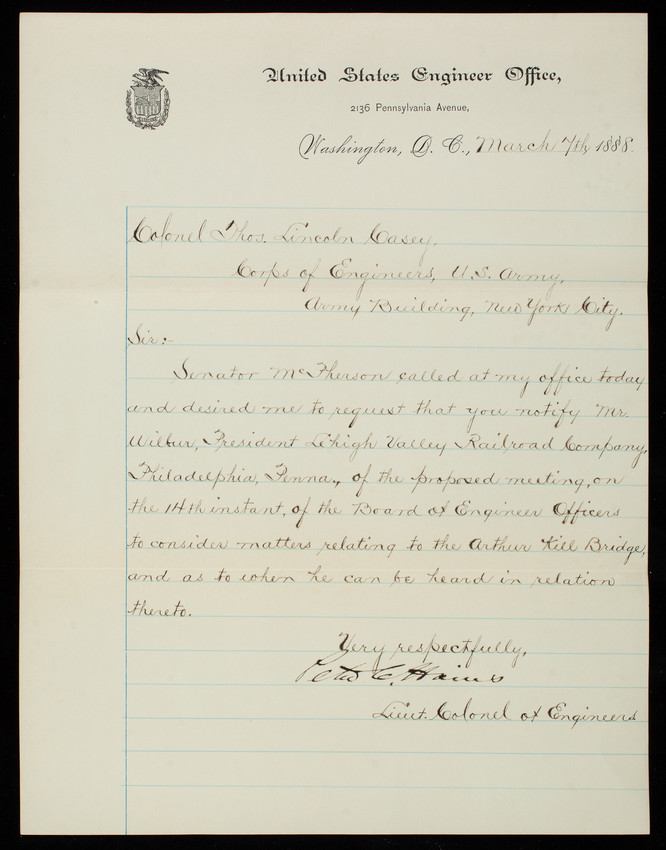 United States Engineer Office,
2136 Pennsylvania Avenue,
Washington, D. C., March 7th, 1888.
Colonel Thos. Lincoln Casey,
Corps of Engineers, U.S. Army,
Army Building, New York City.
Sir:-
Senator McPherson called at my office today
and desired me to request that you notify Mr.
Wilbur, President Lehigh Valley Railroad Company,
Philadelphia, Penna., of the proposed meeting, on
the 14th instant, of the Board of Engineer Officers
to consider matters relating to the Arthur Kill Bridge,
and as to when he can be heard in relation
thereto.
Very respectfully,
Peter C. Hains
Lieut. Colonel of Engineers